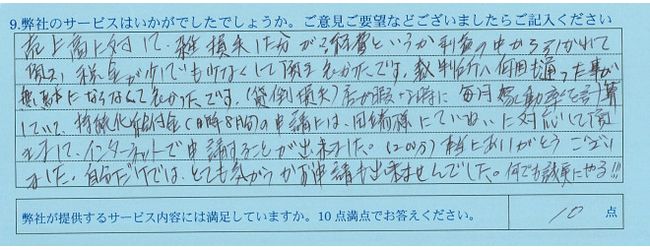 9.弊社のサービスはいかがでしたでしょうか。ご意見ご要望などございましたらご記入ください
売上高に対して、雑損失した分が 経費というか利益の中から引かれて
頂き、税金が少しでも少なくして頂き良かったです。裁判所へ何回も通った事が
無駄にならなくて良かったです。(貸倒損失)店が暇な時に毎月 率を計算
していて、持続化給付金(日時8月頃)の申請には、田 様にていねいに対応して頂
きまして、インターネットで申請することが出来ました。(200万)本当にありがとうござい
ました。自分だけでは、とても気がつかず申請も出来ませんでした。何でも誠実にやる!!
弊社が提供するサービス内容には満足していますか。10点満点でお答えください。
10 点